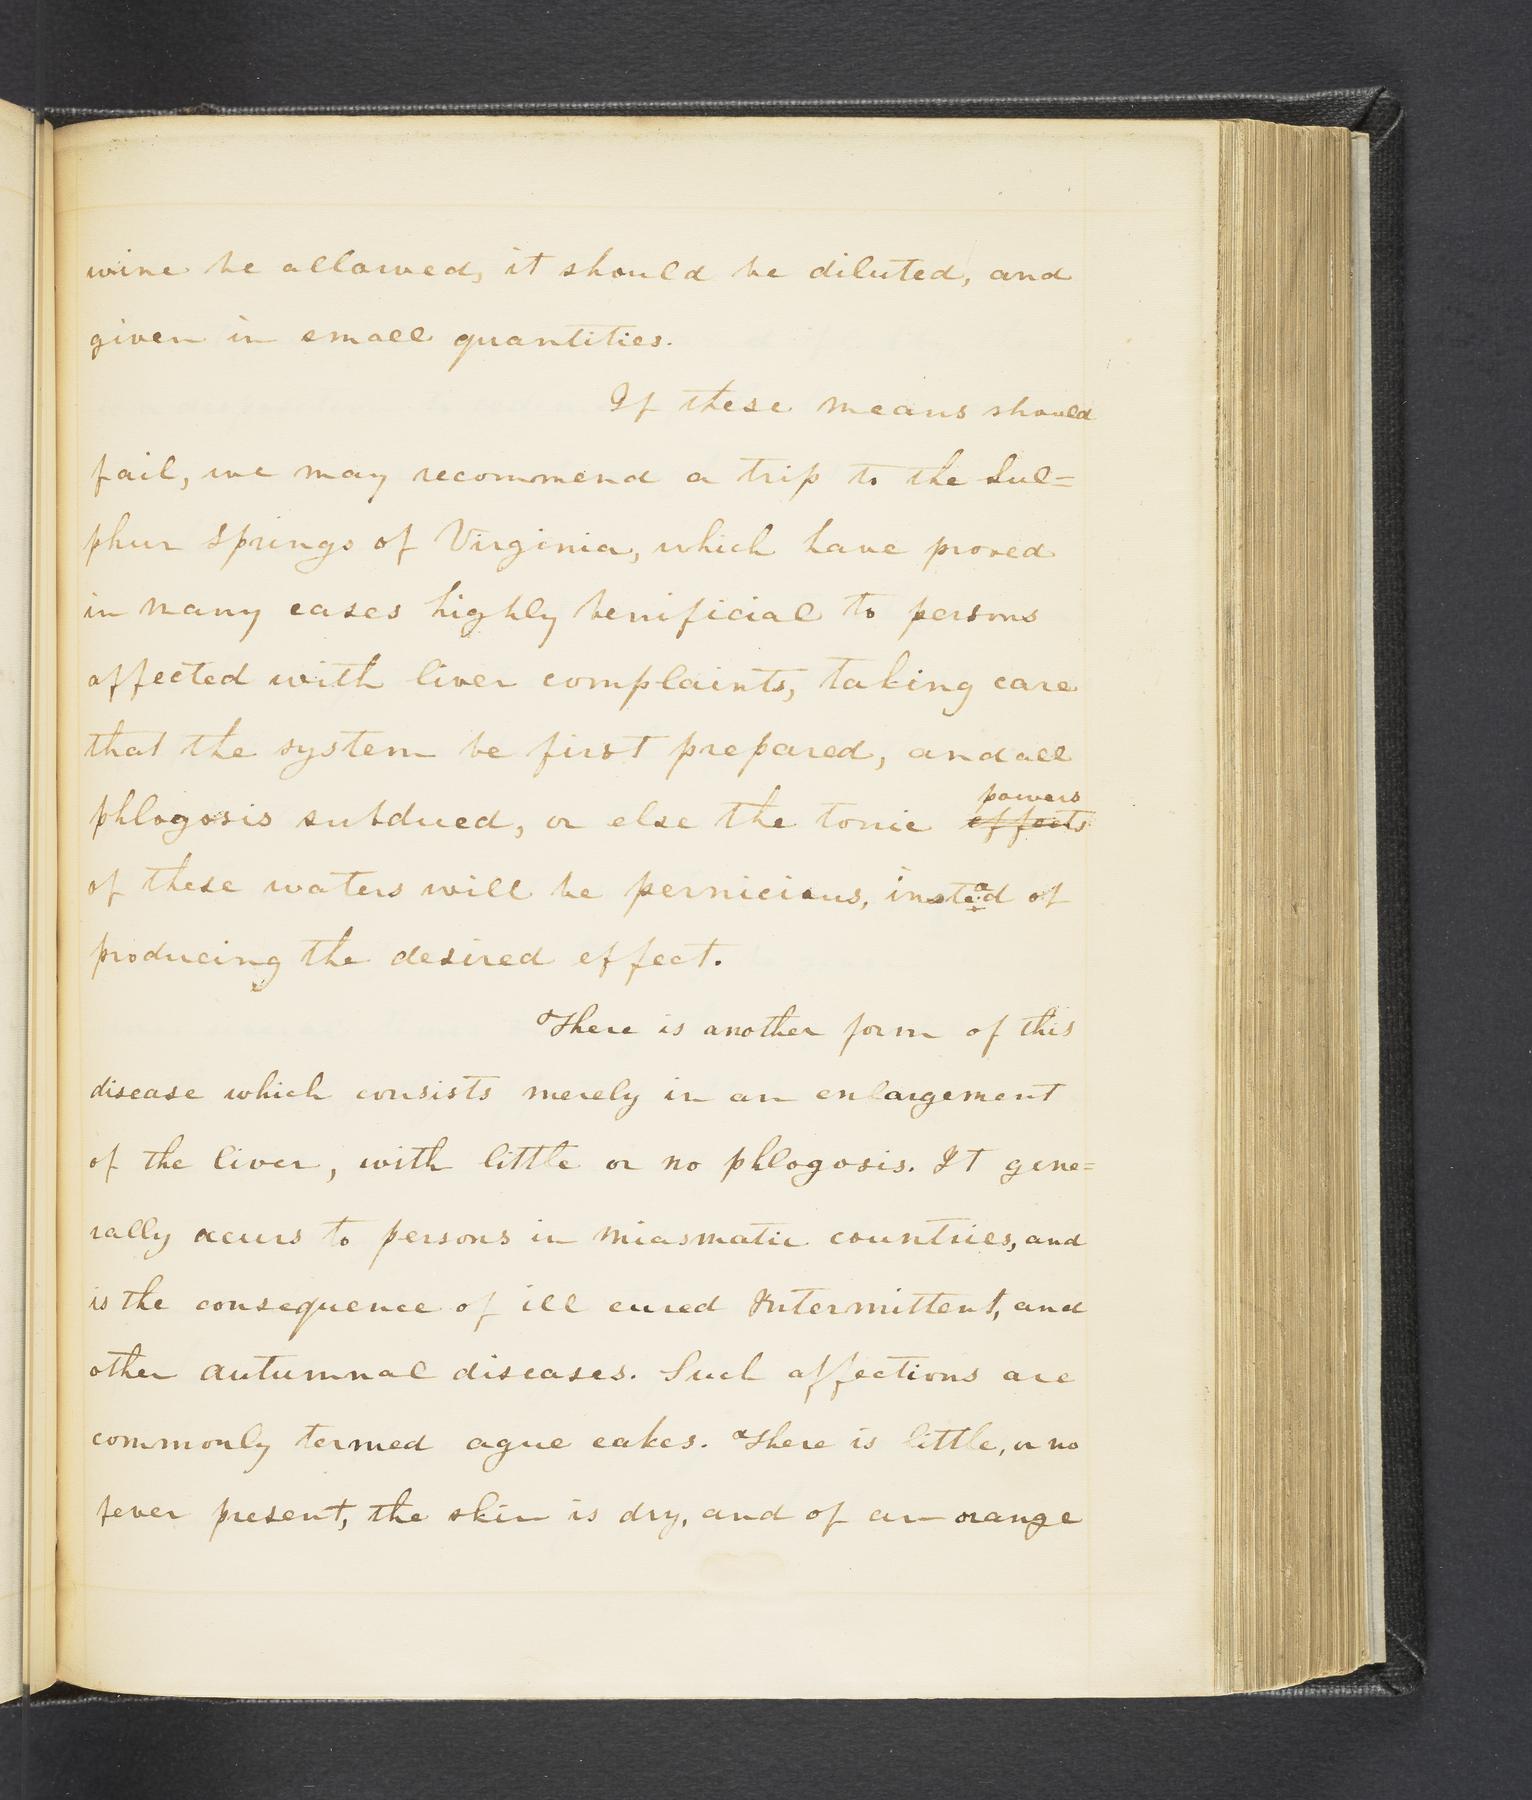 wine be allowed, it should be diluted, and
given in small quantities.
If these means should
fail, we may recommend a trip to the Sul=
phur Springs of Virginia, which have proved
in many cases highly benificial to persons
affected with liver complaints, taking care
that the system be first prepared, and all
powers
phlogosis subdued, or else the tonic effects
of these waters will be pernicious, instead of
producing the desired effect.
There is another form of this
disease which consists merely in an enlargement
of the liver, with little or no phlogosis. It gene=
rally occurs to persons in miasmatic countries, and
is the consequence of ill cured Intermittent, and
other autumnal diseases. Such affections are
commonly termed ague cakes. There is little, or no
fever present, the skin is dry, and of an orange